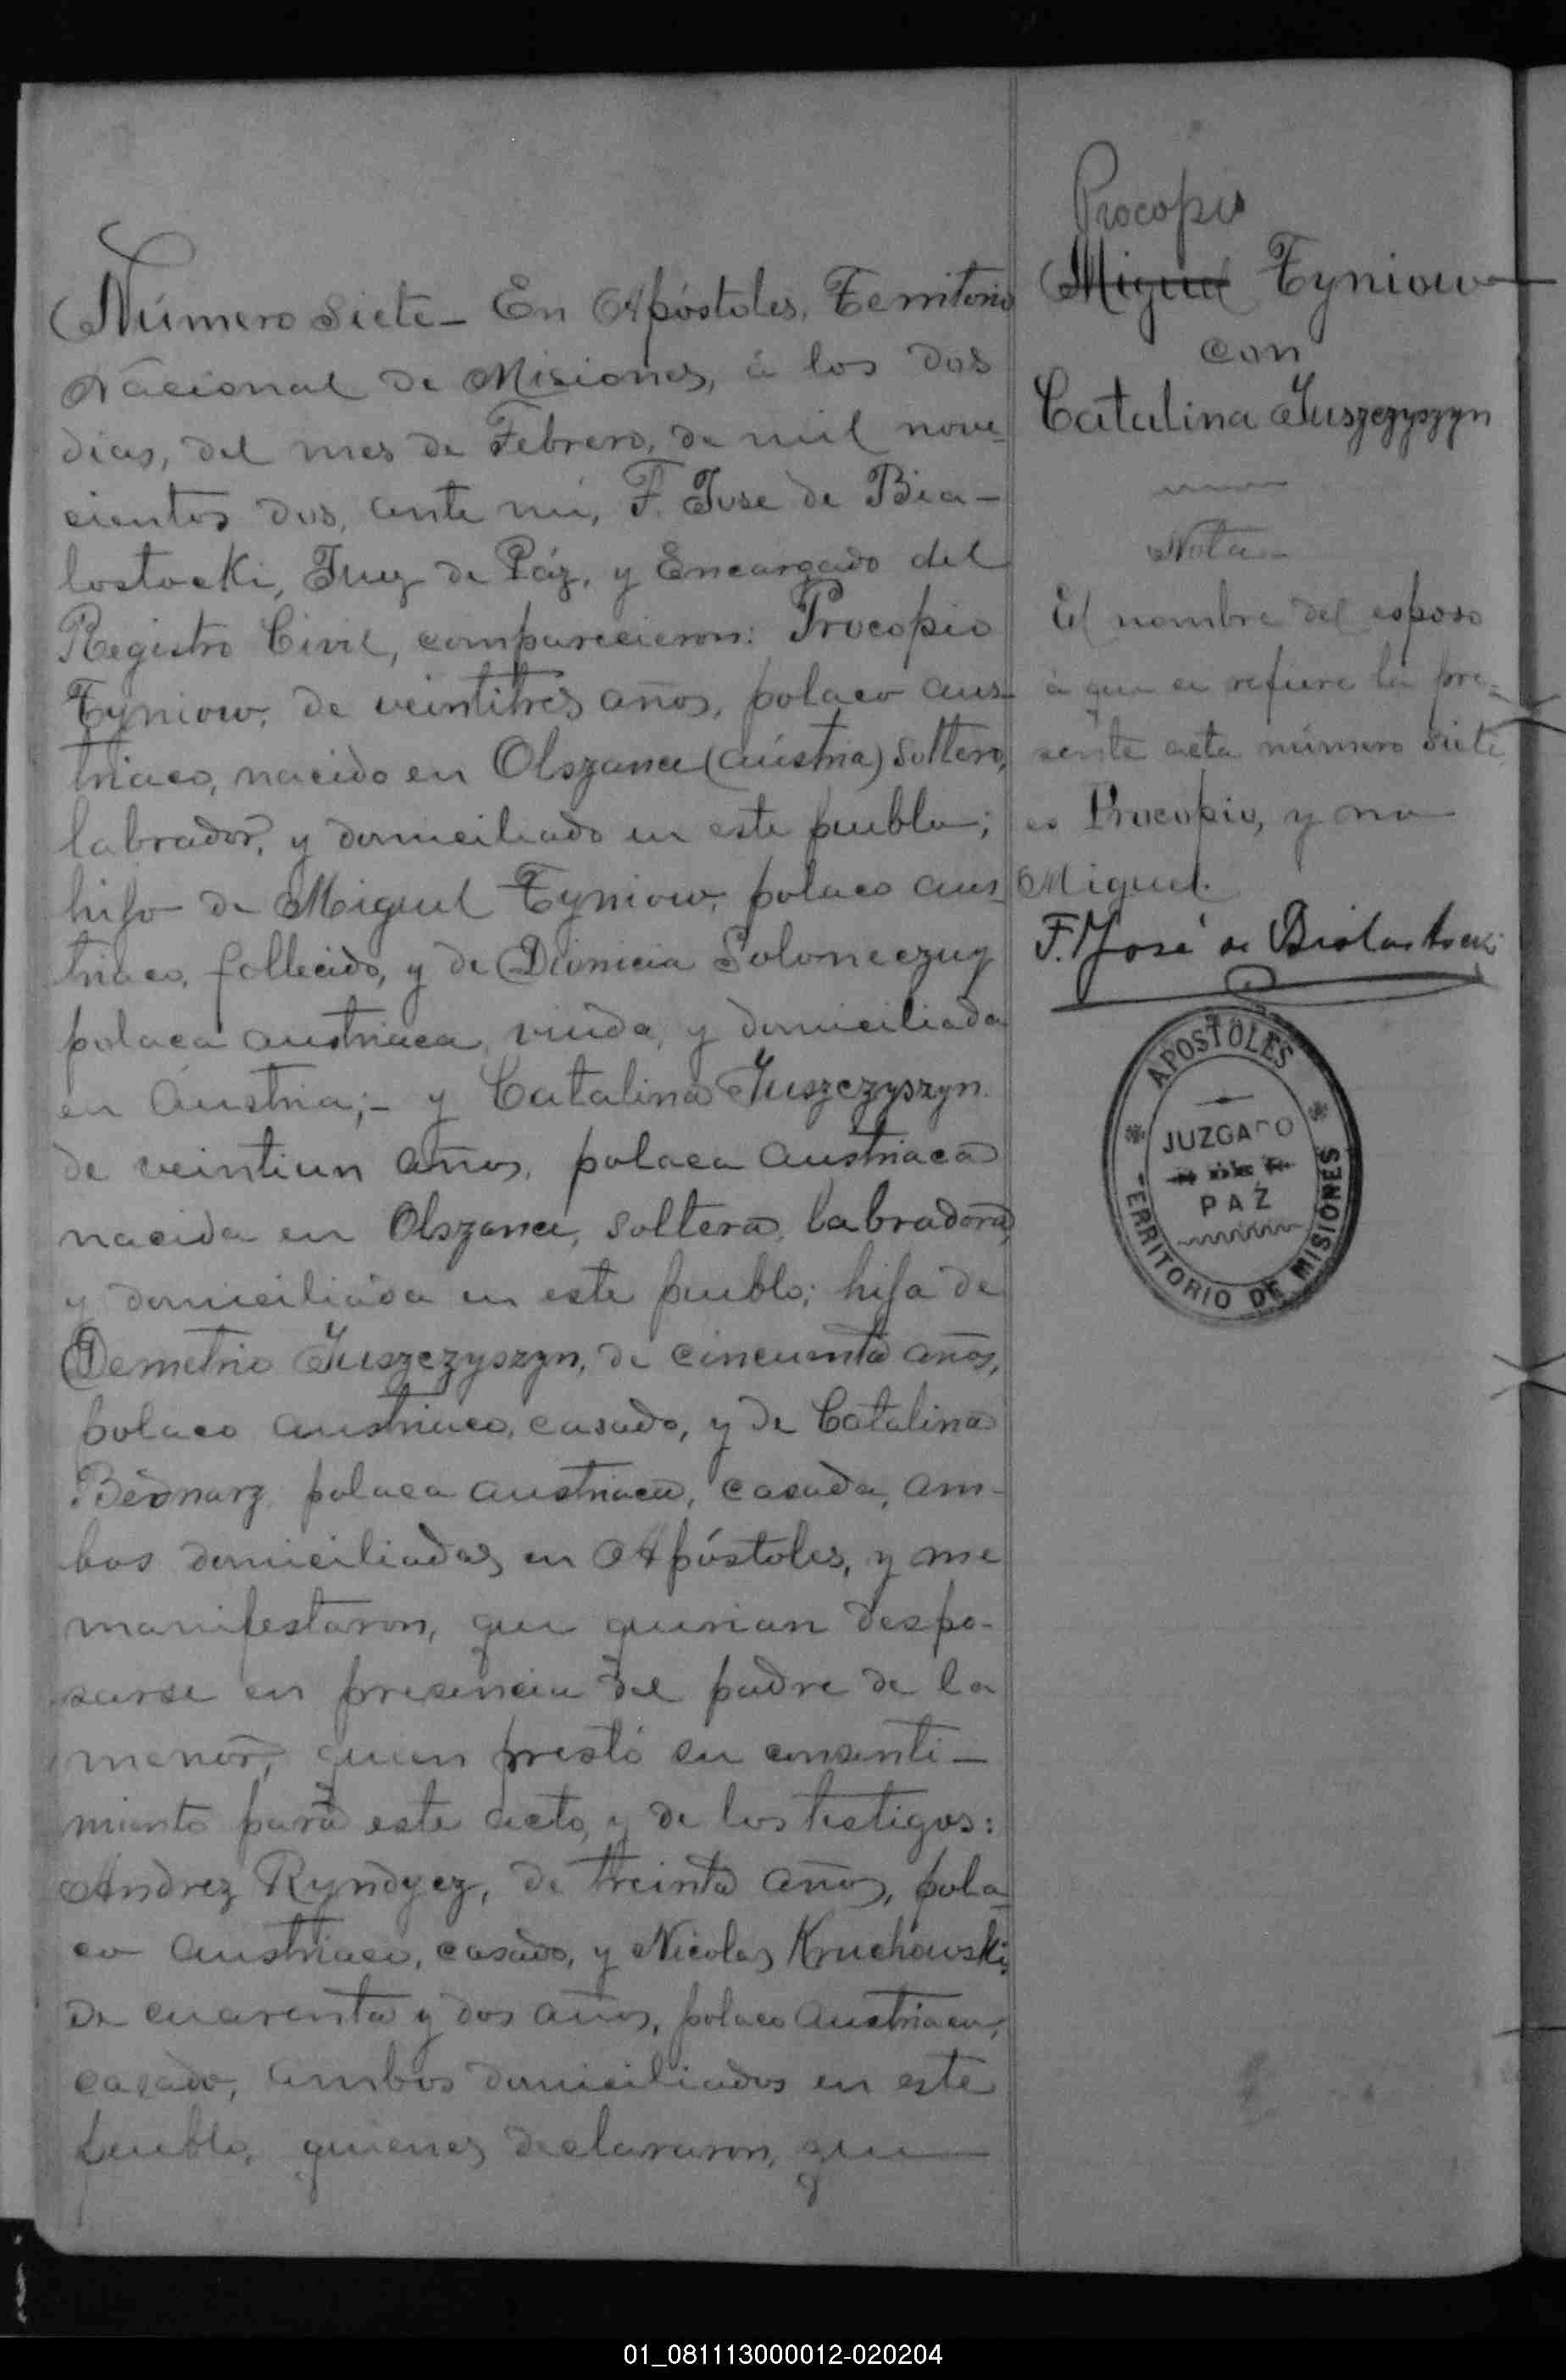 Número siete – En Apóstoles, Territorio
Nacional de Misiones, á los dos
dias, del mes de Febrero, de mil nove-
cientos dos, ante mi, F. José de Bia-
lostocki, Juez de Páz, y Encargado del
Registro Civil, comparecieron: Procopio
Tyniow, de veintitres años, polaco aus-
triaco, nacido en Olszanei (Aústria) soltero,
labrador, y domiciliado en este pueblo;
hijo de Miguel Tyniow, polaco aus-
triaco, fallecido, y de Dionicia Soloneczuy
polaca austriaca, viuda, y domiciliada
en Aústria; – y Catalina Juszczyszyn.
de veintiun años, polaca austriaca
nacida en Olszanei, soltera, labradora,
y domiciliada en este pueblo; hija de
Demetrio Juszczyszyn, de cincuenta años,
polaco austriaco, casado, y de Catalina
Bednarz, polaca austriaca, casada, am-
bos domiciliados en Apóstoles, y me
manifestaron, que querian despo-
sarse en presencia del padre de la
menor, quien prestó su consenti-
miento para este acto, y de los testigos:
Andrez Ryndycz, de treinta años, pola-
co austriaco, casado, y Nicolas Kruchowski,
de cuarenta y dos años, polaco austriaco,
casado, ambos domiciliados en este
pueblo, quienes declararon, que
Procopio
Miguel Tyniow
con
Catalina Juszczyszyn
Nota
El nombre del esposo
á que se refiere la pre-
sente acta número siete
es Procopio, y no
Miguel.
F. José de Bialostocki
APOSTOLES
JUZGADO
DE
PAZ
TERRITORIO DE MISIONES
01_081113000012-020204